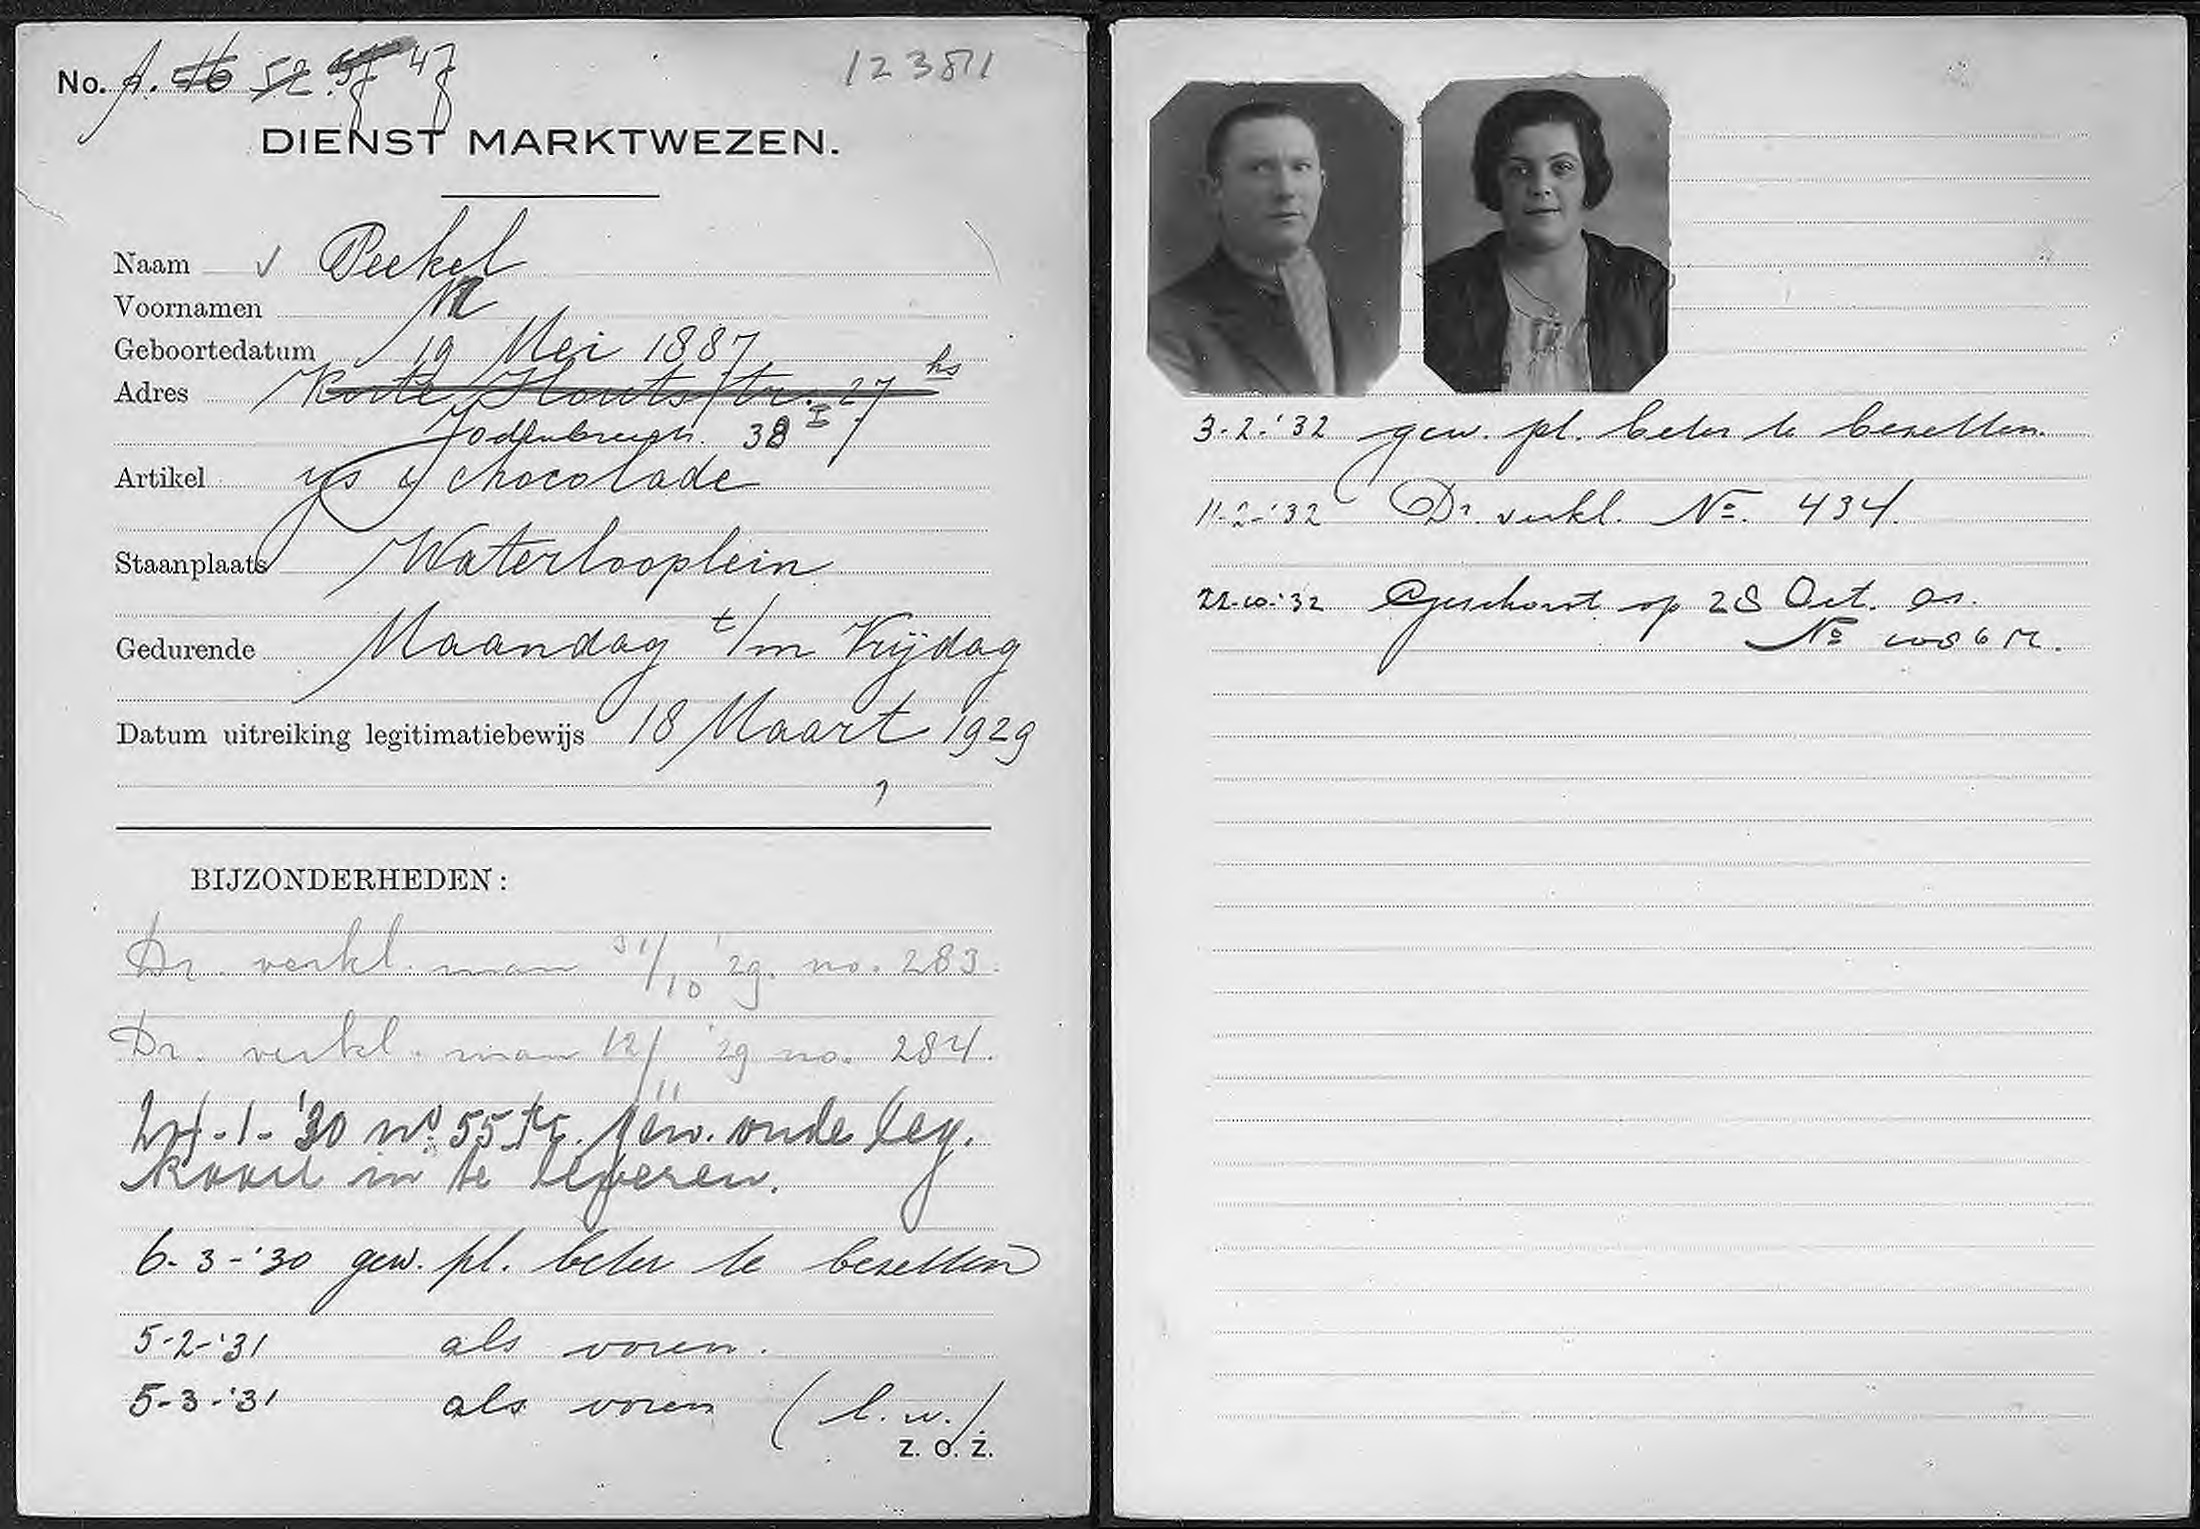 No. A. 46 52 57 47
12381
DIENST MARKTWEZEN.
Naam √ Peekel
Voornamen M
Geboortedatum 19 Mei 1887
Adres Korte Houtstr. 27 hs
Jodenbreestr. 38 I
Artikel ijs & chocolade
Staanplaats Waterlooplein
Gedurende Maandag t/m Vrijdag
Datum uitreiking legitimatiebewijs 18 Maart 1929
BIJZONDERHEDEN:
Dr. verkl. man 31/10 '29. no. 283.
Dr. verkl. man 12/11 '29 no. 284.
-1-'30 no. 55 gew. oude leg.
kaart in te leveren.
6-3-'30 gew. pl. beter te bezetten
5-2-'31 als voren.
5-3-'31 als voren (l.w.)
Z. O. Z.
3-2-'32 gew. pl. beter te bezetten.
11-2-'32 Dr. verkl. No. 434.
22-10-'32 Geschorst op 28 Oct. a.s.
No 1086 M.